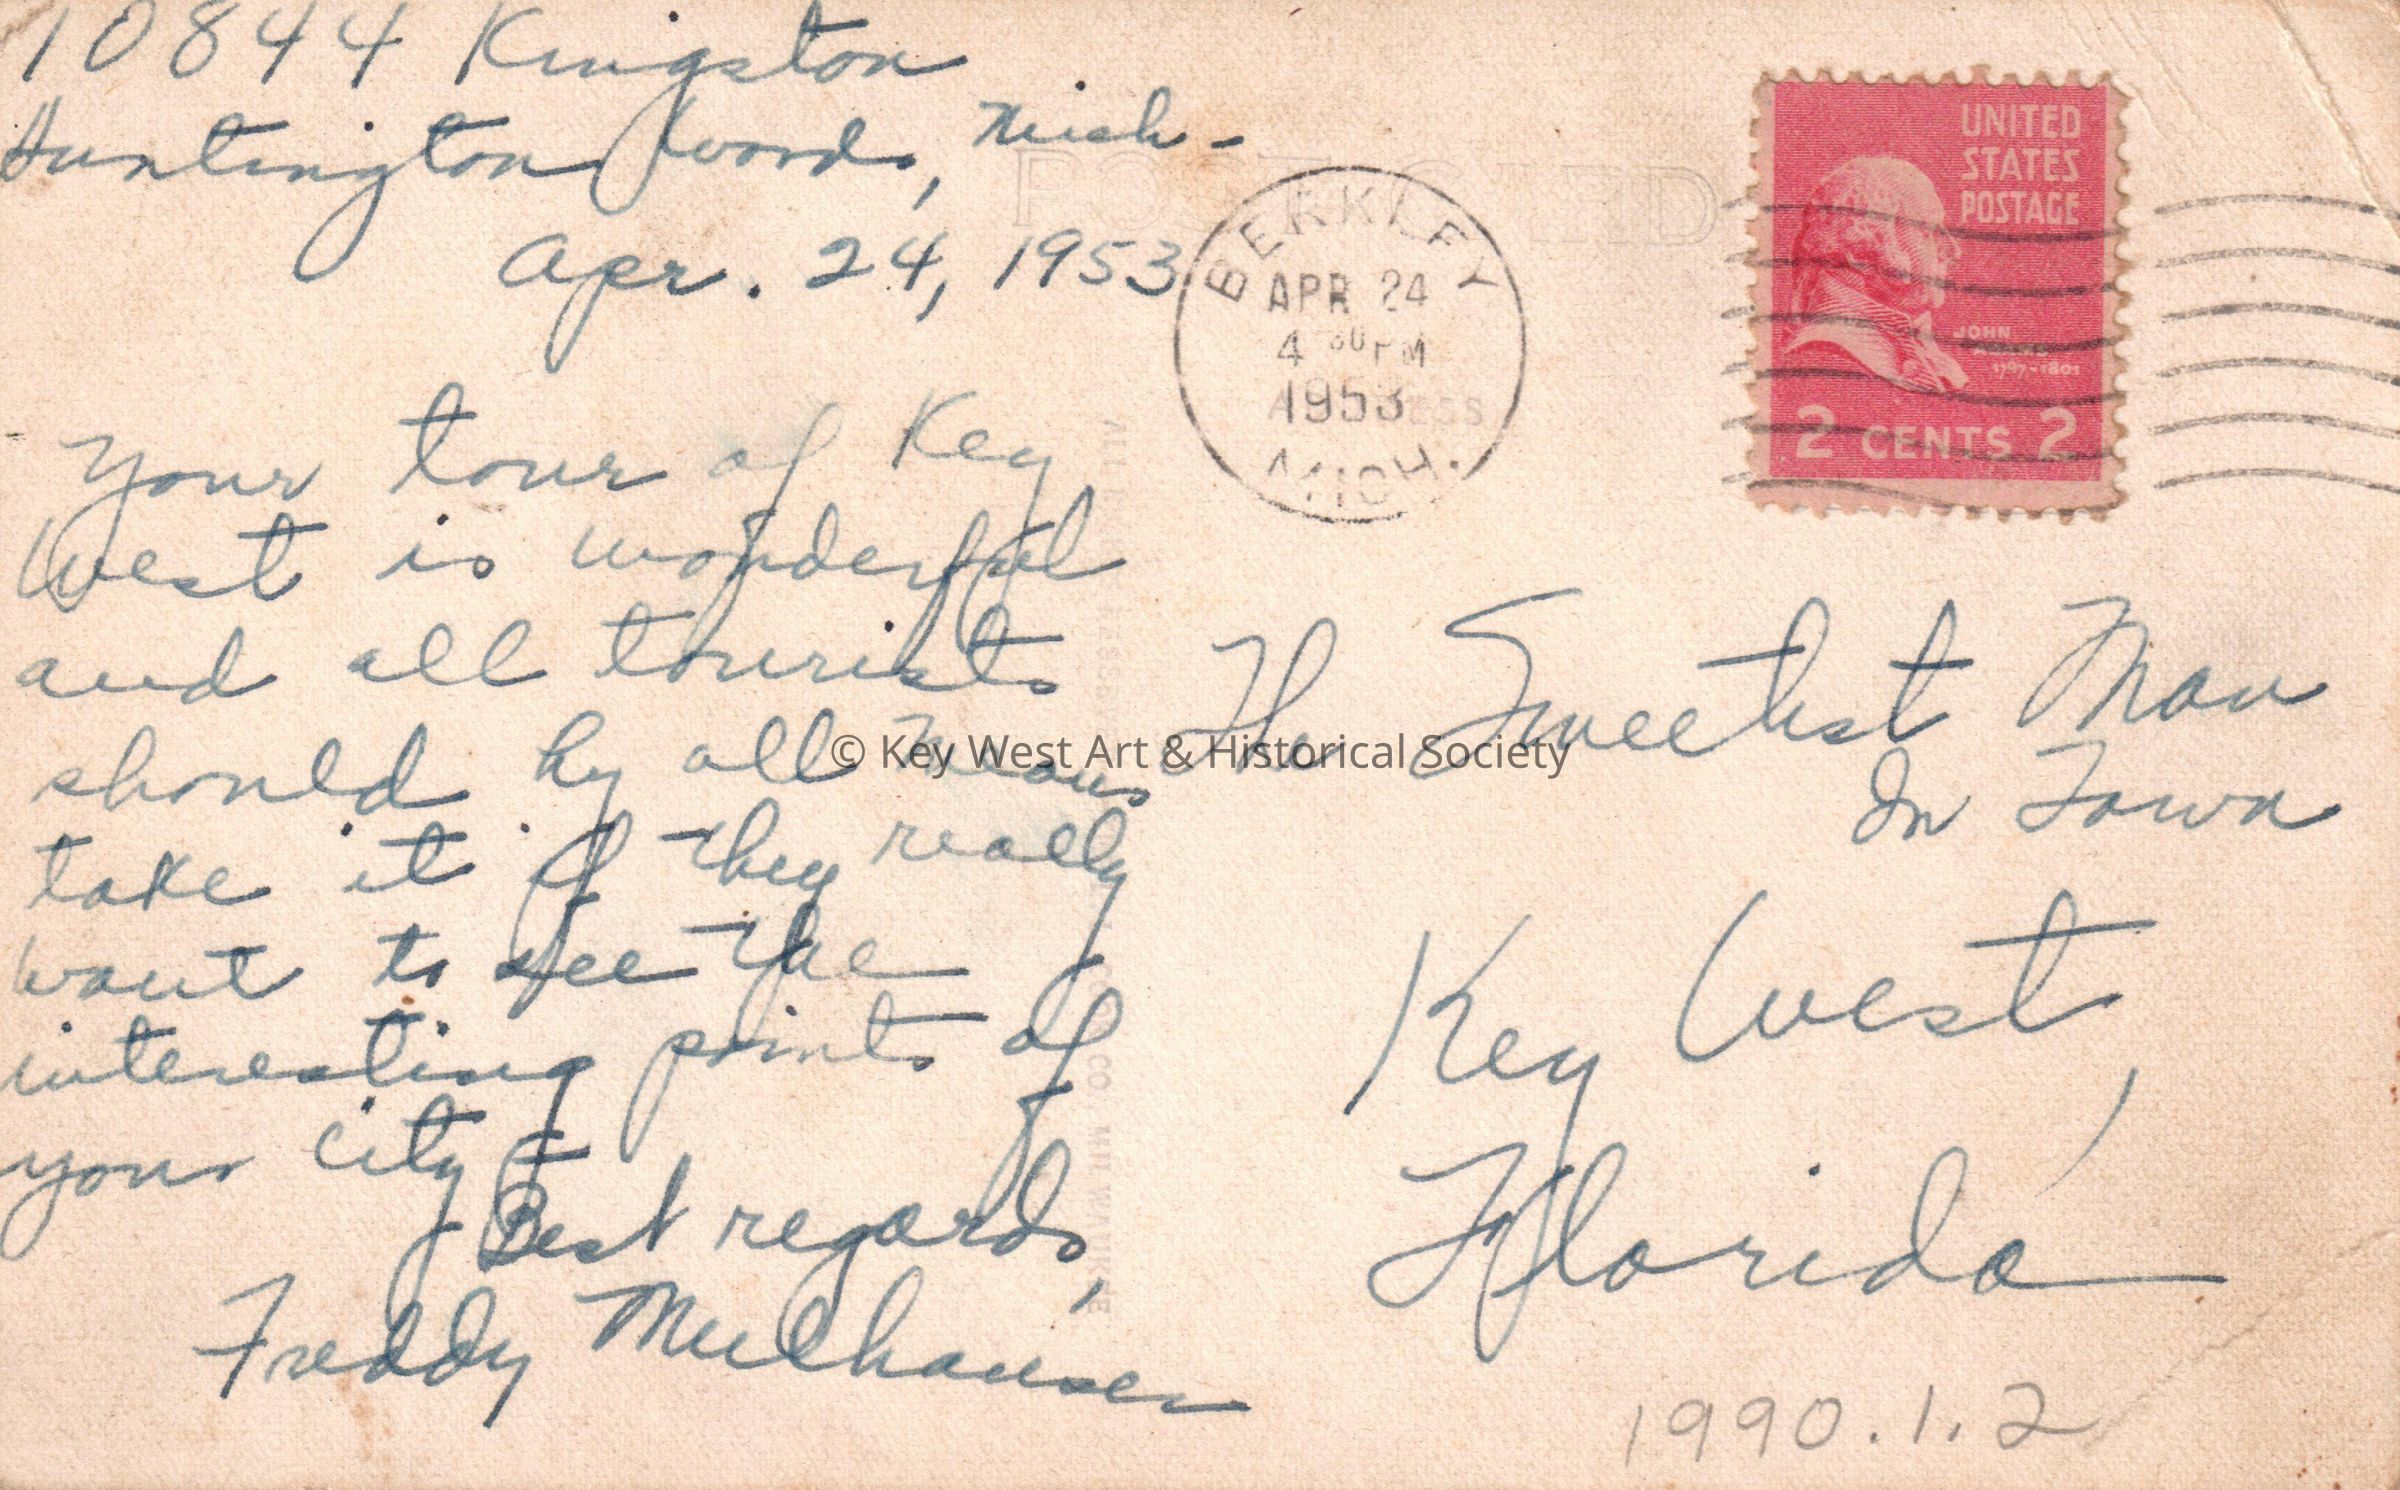 10844 Kingston
Huntington Woods, Mich-
Apr. 24, 1953
Your tour of Key
West is wonderful
and all tourists
should by all means
take it if they really
want to see the
interesting points of
your city
Best regards,
Freddy Mulhauser
POST CARD
BERKLEY
APR 24
4 30 PM
1953
MICH.
UNITED
STATES
POSTAGE
JOHN
ADAMS
1797-1801
2 CENTS 2
The Sweetest Man
In Town
Key West,
Florida
1990.1.2
© Key West Art & Historical Society